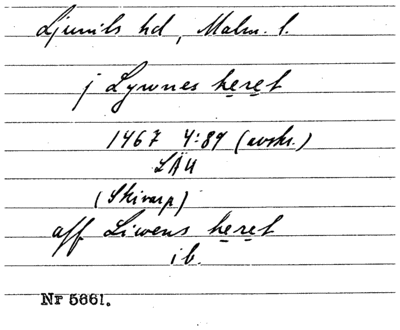 Ljunits hd, Malm. l.
j Lywnes heret
1467 4:89 (avskr.)
LÄU
(Skivarp)
aff Liwens heret
ib.
Nr 5661.